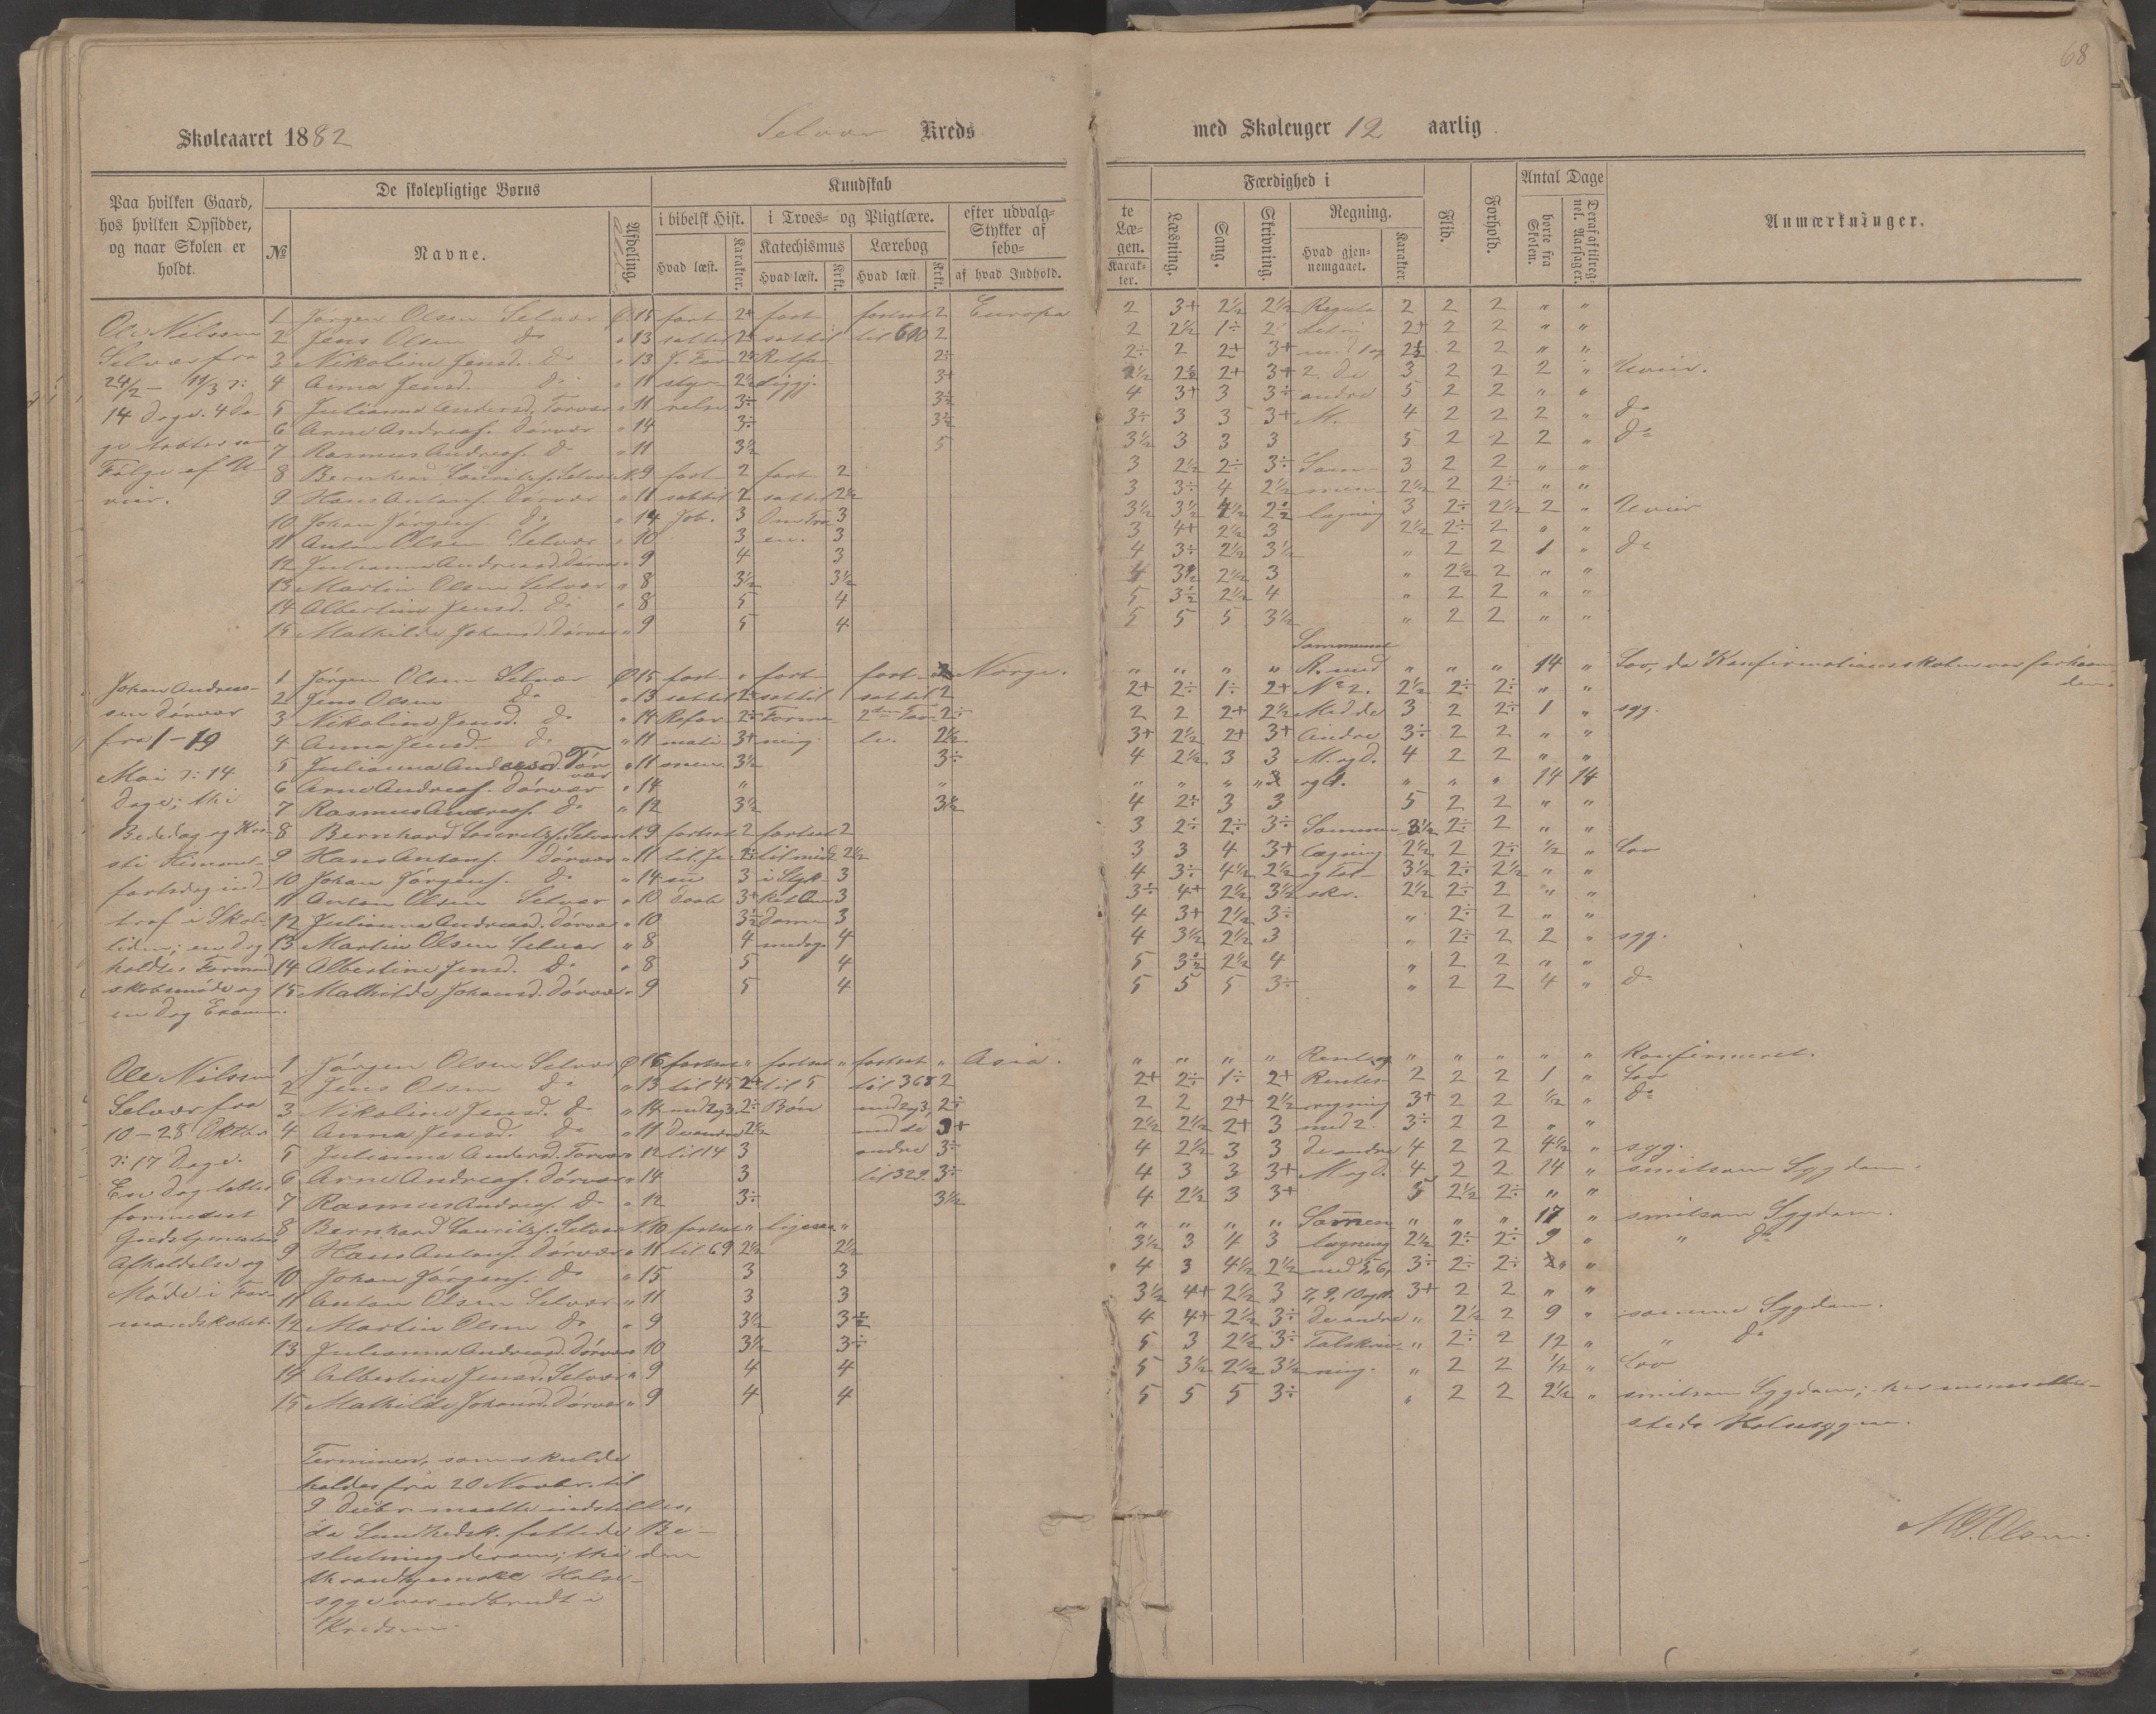 68
Skoleaaret 1882 Selvær Kreds med Skoleuger 12 aarlig
Paa hvilken Gaard, hos hvilken Opsidder, og naar Skolen er holdt.
De skolepligtige Børns
№ Navne. Afdeling.
Kundskab
i bibelsk Hist. Hvad læst. Karakter.
i Troes- og Pligtlære.
Katechismus Hvad læst. Krkt.
Lærebog Hvad læst Krkt.
efter udvalg- Stykker af sebo- af hvad Indhold.
te Læ- gen. Karak- ter.
Færdighed i
Læsning. Sang. Skrivning.
Regning. Hvad gjen- nemgaaet. Karakter.
Flid. Forhold.
Antal Dage
borte fra Skolen.
Anmærkninger.
Ole Nilssen
Selvær fra
24/2 - 11/3 ɔ:
14 Dage. 4 Da-
ge tabtes som
Følge af U-
veir.
1 Jørgen Olsen Selvær 15 fort- 2+ fort- fortsat 2 Europa 2 3+ 2½ 2½ Regula 2 2 2 " "
2 Jens Olsen do " 13 sat til sat til til 600 2 2 2½ 1÷ 2 detri 2+ 2 2 " "
3 Nikoline Jensd. do " 13 2÷ 2÷ 2 2+ 3+ 2½ 2 2 " "
4 Anna Jensd. do " 11 styr- 2½ 3+ 2½ 2½ 2+ 3+ 2. De 3 2 2 2 " Uveir.
5 Julianna Andersd. Torvær " 11 relse 3÷ 3½ 4 3+ 3 3÷ andre 5 2 2 " "
6 Arne Andreas. Dørvær " 14 3÷ 3½ 3÷ 3 3 3+ M. 4 2 2 2 " do
7 Rasmus Andreas. do " 11 3½ 5 3½ 3 3 3 5 2 2 2 " do
8 Bernhard Lauritzs. Selvær N. 9 fort 2 fort 2 3 2½ 2÷ 3÷ Sam- 3 2 2 " "
9 Hans Antons. Dørvær " 11 sat til 2 sat til 2½ 3 3÷ 4 2½ men- 2½ 2 2÷ " "
10 Johan Jørgens. do " 14 Job. 3 Om Tro 3 3½ 3½ 4½ 2½ lægning 3 2÷ 2½ 2 " Uveir
11 Anton Olsen Selvær " 10 3 en. 3 3 4+ 2½ 3 2½ 2÷ 2 " "
12 Julianna Andreasd. Dørvær " 9 4 3 4 3÷ 2½ 3½ " 2 2 1 " do
13 Martin Olsen Selvær " 8 3½ 3½ 4 3½ 2½ 3 " 2½ 2 " "
14 Albertine Jensd. do " 8 5 4 5 3½ 2½ 4 " 2 2 " "
15 Mathilde Johansd. Dørvær " 9 5 4 5 5 5 3½ " 2 2 " "
Johan Andreas-
sen Dørvær
fra 1 - 19
Mai ɔ: 14
Dage; thi
Bededag og Kri-
sti Himmel-
fartsdag ind-
traf i Skole-
tiden; en Dag
holdtes Formand-
skabsmøde og
en Dag Examen.
Sammensat
1 Jørgen Olsen Selvær 15 fort- " fort- fort- Norge. " " " " R. med " " " 14 " Lov, da Konfirmationsskolen var forhaan-
den.
2 Jens Olsen do " 13 sat til 2+ sat til sat til 2 2+ 2÷ 1÷ 2+ No 2. 2½ 2÷ 2÷ " "
3 Nikoline Jensd. do " 14 Refor- 2÷ 2÷ 2 2 2+ 2½ Med de 3 2 2÷ 1 " syg.
4 Anna Jensd. do " 11 mati- 3+ 2½ 3+ 2½ 2+ 3+ Andre 3÷ 2 2 " "
5 Julianna Andersd. Tor- vær " 11 onen. 3½ 3÷ 4 2½ 3 3 M. og D. 4 2 2 " "
6 Arne Andreas. Dørvær " 14 " " " " " " " " 14 14
7 Rasmus Andreas. do " 12 3½ 3½ 4 2÷ 3 3 5 2 2 " "
8 Bernhard Lauritzs. Selvær N. 9 fortsat 2 fortsat 2 3 2÷ 2÷ 3÷ Sammen- 3½ 2÷ 2 " "
9 Hans Antons. Dørvær " 11 til Je- til 2½ 3 3 4 3+ lægning 2½ 2 2÷ ½ " Lov
10 Johan Jørgens. do " 14 su 3 i Styk. 3 4 3÷ 4½ 2½ og Tal- 3½ 2÷ 2½ " "
11 Anton Olsen Selvær " 10 Daab 3+ 3 3÷ 4+ 2½ 3½ skr. 2½ 2÷ 2 " "
12 Julianna Andreasd. Dørvær " 10 3½ 3 4 3+ 2½ 3÷ " 2÷ 2 " "
13 Martin Olsen Selvær " 8 4 4 4 3½ 2½ 3 " 2÷ 2 2 " syg.
14 Albertine Jensd. do " 8 5 4 5 3½ 2½ 4 " 2 2 " "
15 Mathilde Johansd. Dørvær " 9 5 4 5 5 5 3÷ " 2 2 4 " do
Ole Nilssen
Selvær fra
10 - 28 Oktbr.
ɔ: 17 Dage.
En Dag tabtes
formedelst
Afholdelse og
Møde i For-
mandskabet.
1 Jørgen Olsen Selvær 16 fortsat " fortsat " fortsat " Asia. " " " " " " " " " Konfirmeret.
2 Jens Olsen do " 13 til 45 2+ til 5 til 368 2 2+ 2÷ 1÷ 2+ Rentes- 2 2 2 1 " Lov
3 Nikoline Jensd. do " 14 med 2 og 3. 2÷ Bøn med 2 og 3, 2÷ 2 2 2+ 2½ regning 3+ 2 2 ½ " do
4 Anna Jensd. do " 11 De andre 2½ med de 2½ 2½ 2+ 3 med 2. 3÷ 2 2 " "
5 Julianna Andersd. Torvær " 12 til 14 3 andre 3÷ 4 2½ 3 3 De andre 4 2 2 4½ " syg.
6 Arne Andreas. Dørvær " 14 3 til 329. 3÷ 4 3 3 3+ M og D. 4 2 2 14 " smitsom Sygdom.
7 Rasmus Andreas. do " 12 3÷ 3½ 4 2½ 3 3+ 5 2½ 2÷ " "
8 Bernhard Lauritzs. Selvær N. 10 fortsat " ligesaa " " " " " Sammen- " " " 17 " smitsom Sygdom.
9 Hans Antons. Dørvær " 11 til 69 2½ 2½ 3½ 3 4 3 lægning 2½ 2÷ 2÷ 9 " " do
10 Johan Jørgens. do " 15 3 3 4 3 4½ 2½ med 5, 6, 3÷ 2÷ 2÷ "
11 Anton Olsen Selvær " 11 3 3 3½ 4+ 2½ 3 7, 9, 10 og 11. 3+ 2 2 " "
12 Martin Olsen do " 9 3½ 3½ 4 4+ 2½ 3÷ De andre " 2½ 2 9 " samme Sygdom.
13 Julianna Andreasd. Dørvær " 10 3½ 3÷ 5 3 2½ 3÷ Talskriv- " 2÷ 2 12 " " do
14 Albertine Jensd. Selvær " 9 4 4 5 3½ 2½ 3½ ning. " 2 2 ½ " Lov
15 Mathilde Johansd. Dørvær " 9 4 4 5 5 5 3÷ " 2 2 2½ " smitsom Sygdom;
steds Halssygen.
Terminen, som skulde
holdes fra 20 Novbr. til
9 Decbr. maatte indstilles,
da Sundhedsk. fattede Be-
slutning derom; thi den
throndhjemske Hals-
syge var udbrudt i
Kredsen.
Olsen.